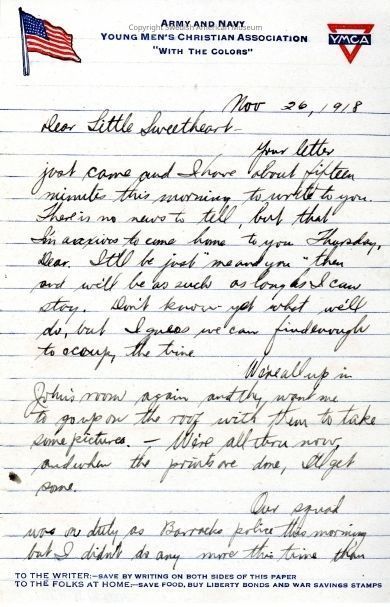 Copyright Swedish American Museum
ARMY AND NAVY
YOUNG MEN'S CHRISTIAN ASSOCIATION
"WITH THE COLORS"
YMCA
Nov 26, 1918
Dear Little Sweetheart -
Your letter
just came and I have about fifteen
minutes this morning to write to you.
There is no news to tell, but that
I'm anxious to come home to you Thursday,
Dear. It'll be just "me and you" then
and we'll be as such as long as I can
stay. Don't know yet what we'll
do, but I guess we can find enough
to occupy the time
We're all up in
John's room again and they want me
to go up on the roof with them to take
some pictures. - We're all thru now,
and when the prints are done, I'll get
some.
Our squad
was on duty as Barracks police this morning
but I didn't do any more this time than
TO THE WRITER:-SAVE BY WRITING ON BOTH SIDES OF THIS PAPER
TO THE FOLKS AT HOME:-SAVE FOOD, BUY LIBERTY BONDS AND WAR SAVINGS STAMPS